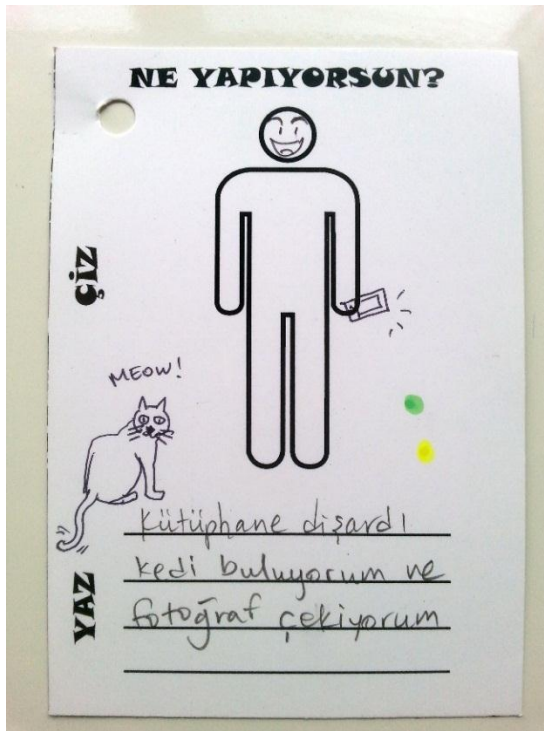 NE YAPIYORSUN?
ÇİZ
MEOW!
YAZ
kütüphane dişardı
kedi buluyorum ne
fotoğraf çekiyorum